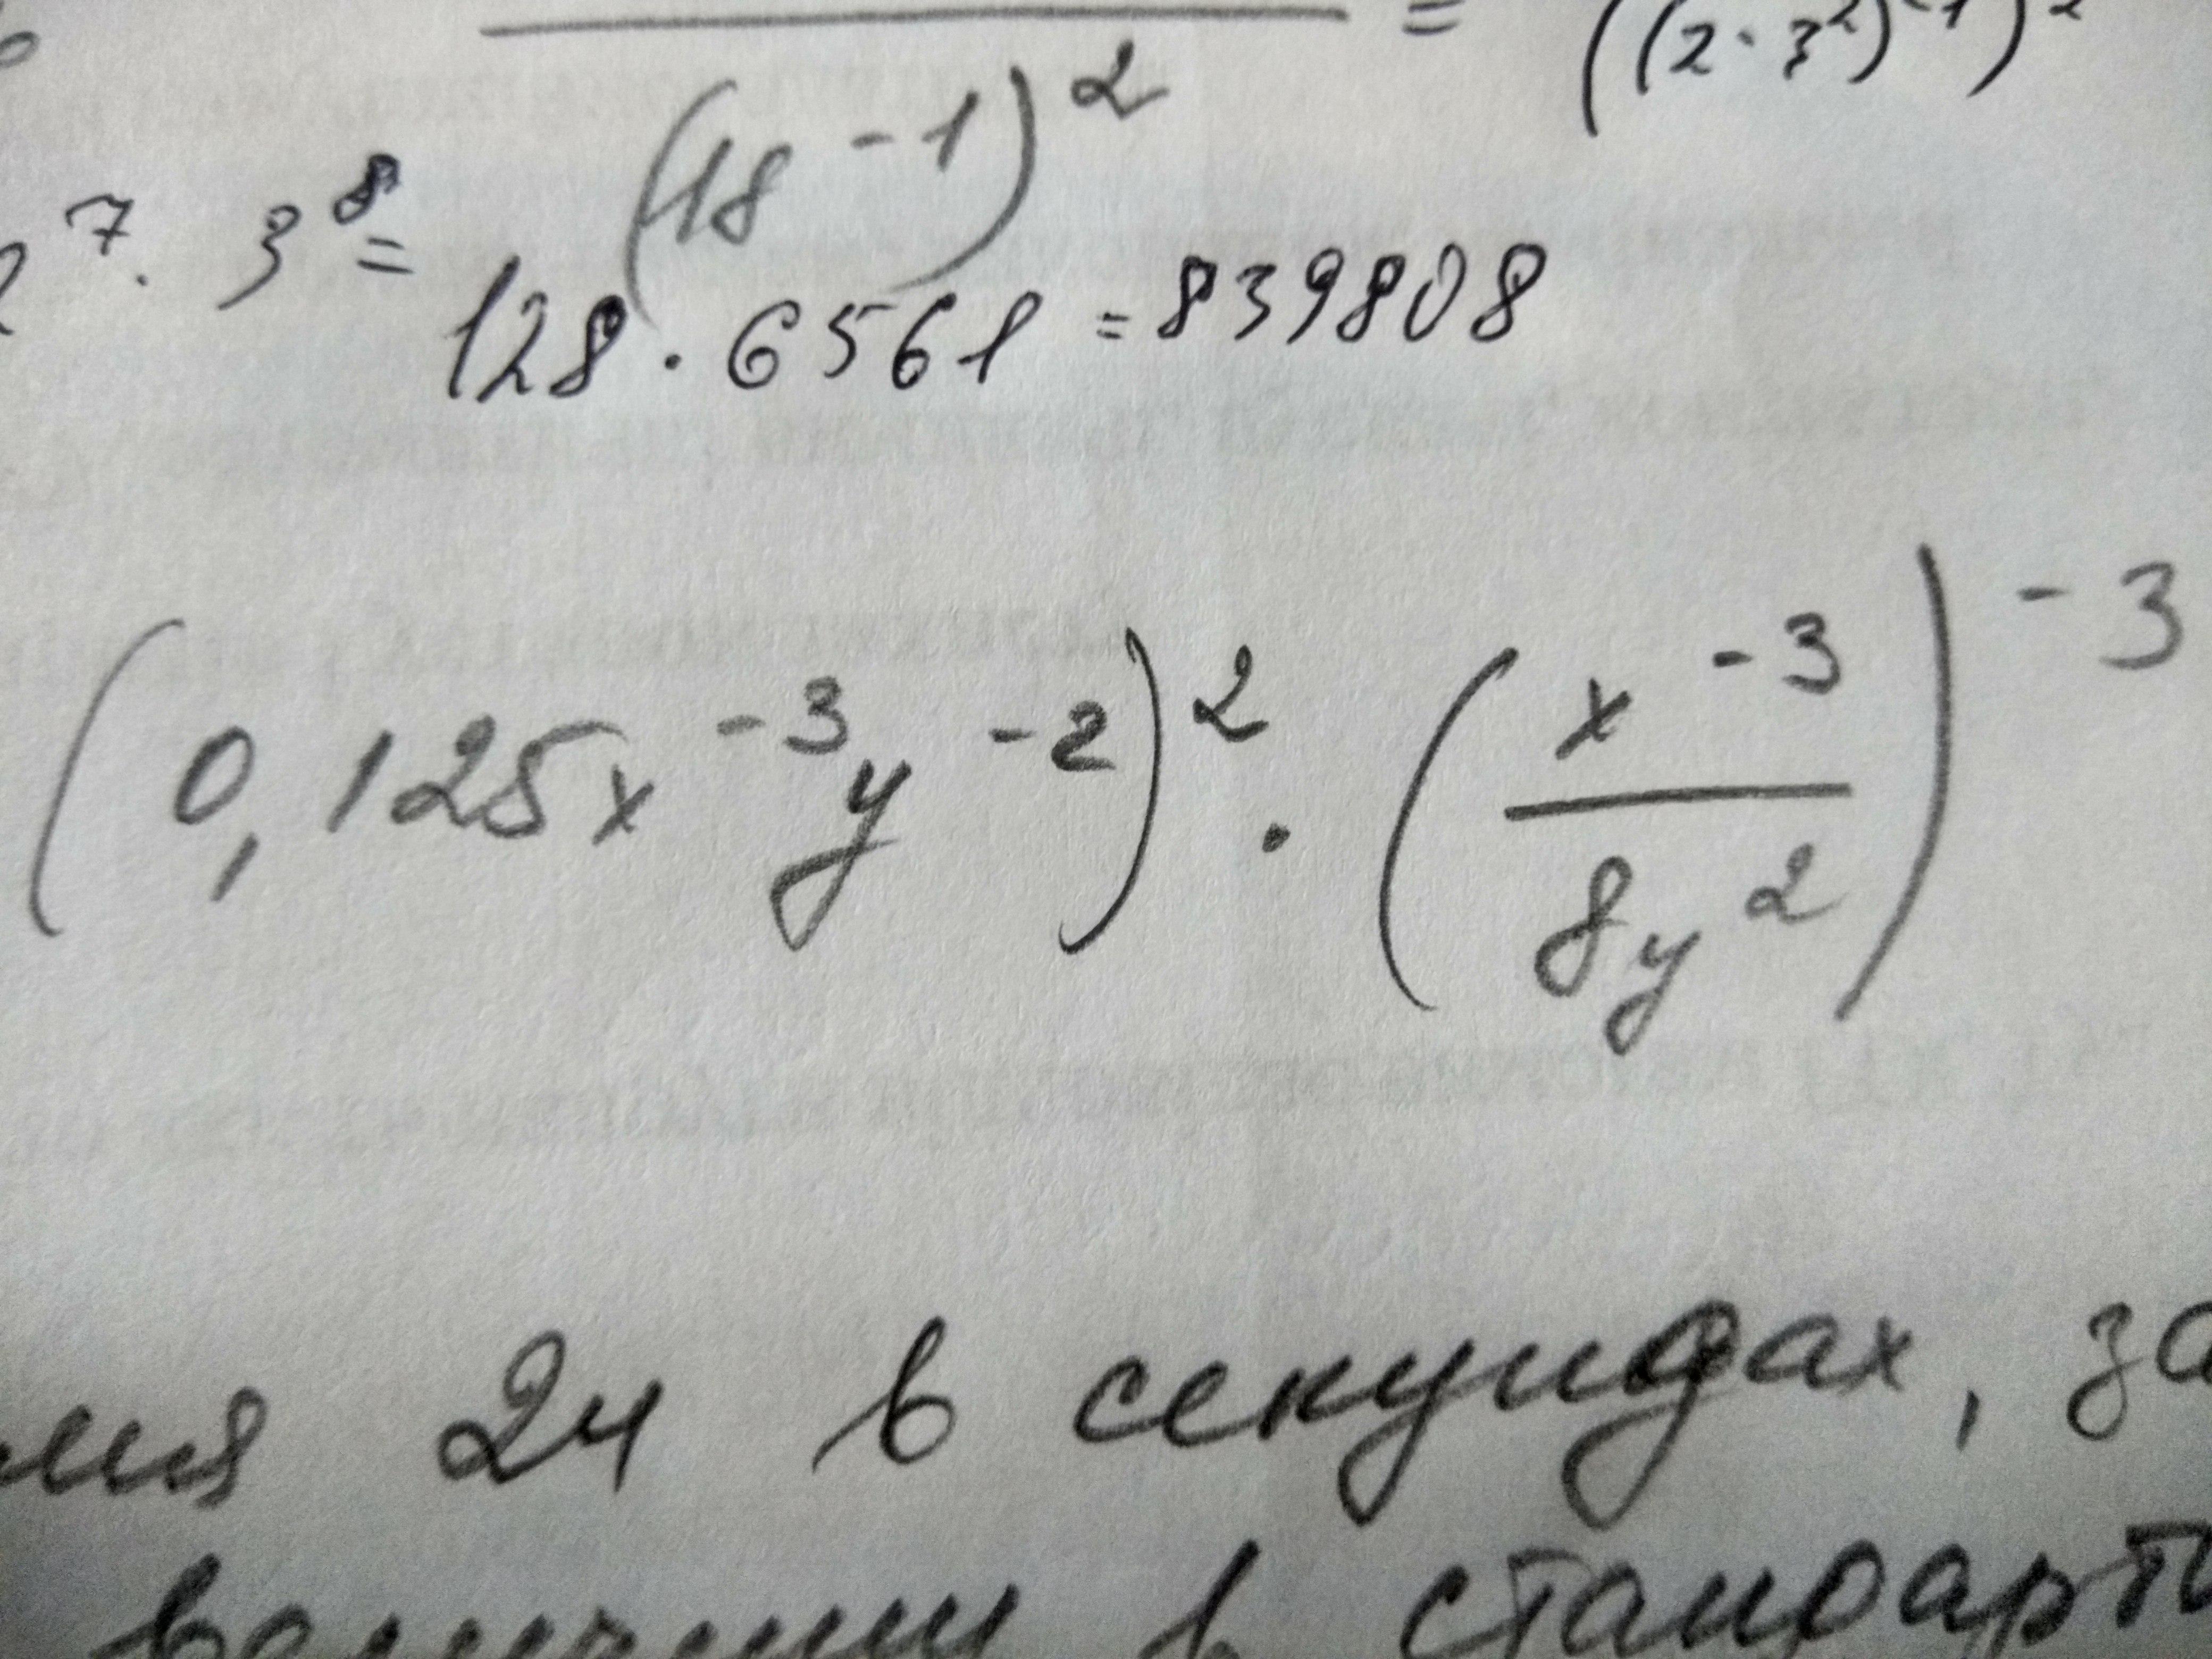 = ((2·3²)⁻¹)²
(18⁻¹)²
⁷·3⁸=
128·6561=839808
(0,125x⁻³y⁻²)²·(x⁻³/8y²)⁻³
24 в секундах, за
в стандарт